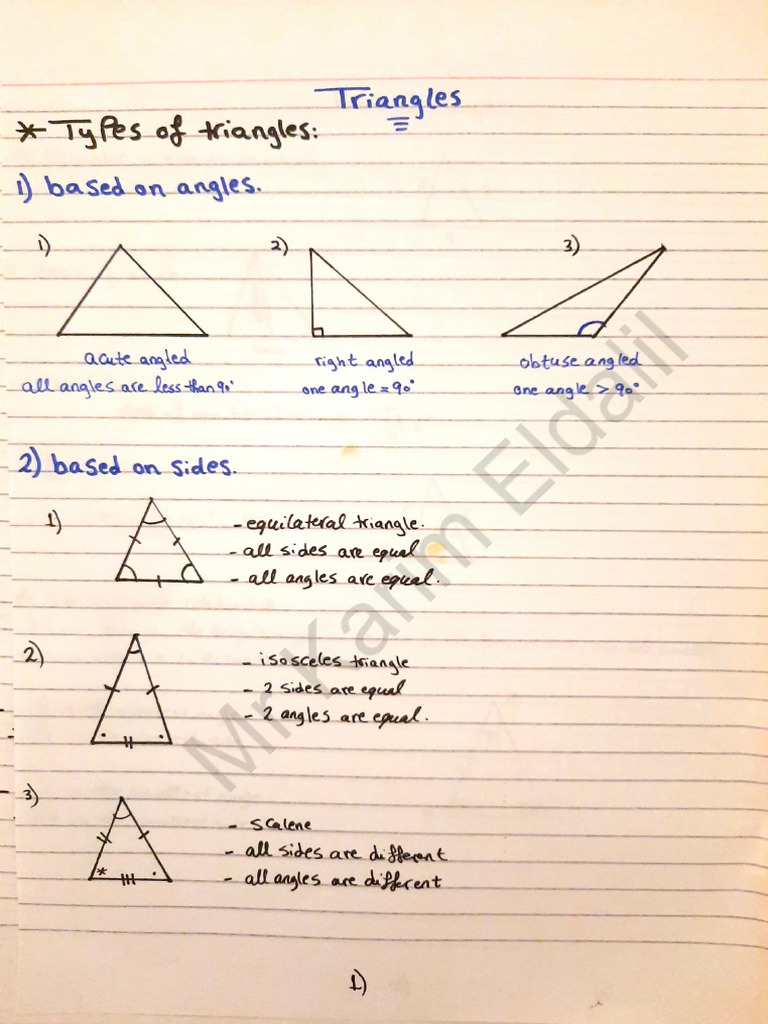 Triangles
* Types of triangles:
1) based on angles.
1)
2)
3)
acute angled
right angled
obtuse angled
all angles are less than 90°
one angle = 90°
one angle > 90°
2) based on sides.
1)
- equilateral triangle.
- all sides are equal
- all angles are equal.
2)
- isosceles triangle
- 2 sides are equal
- 2 angles are equal.
3)
- scalene
- all sides are different
- all angles are different
1)
Mr Karim Eldalil